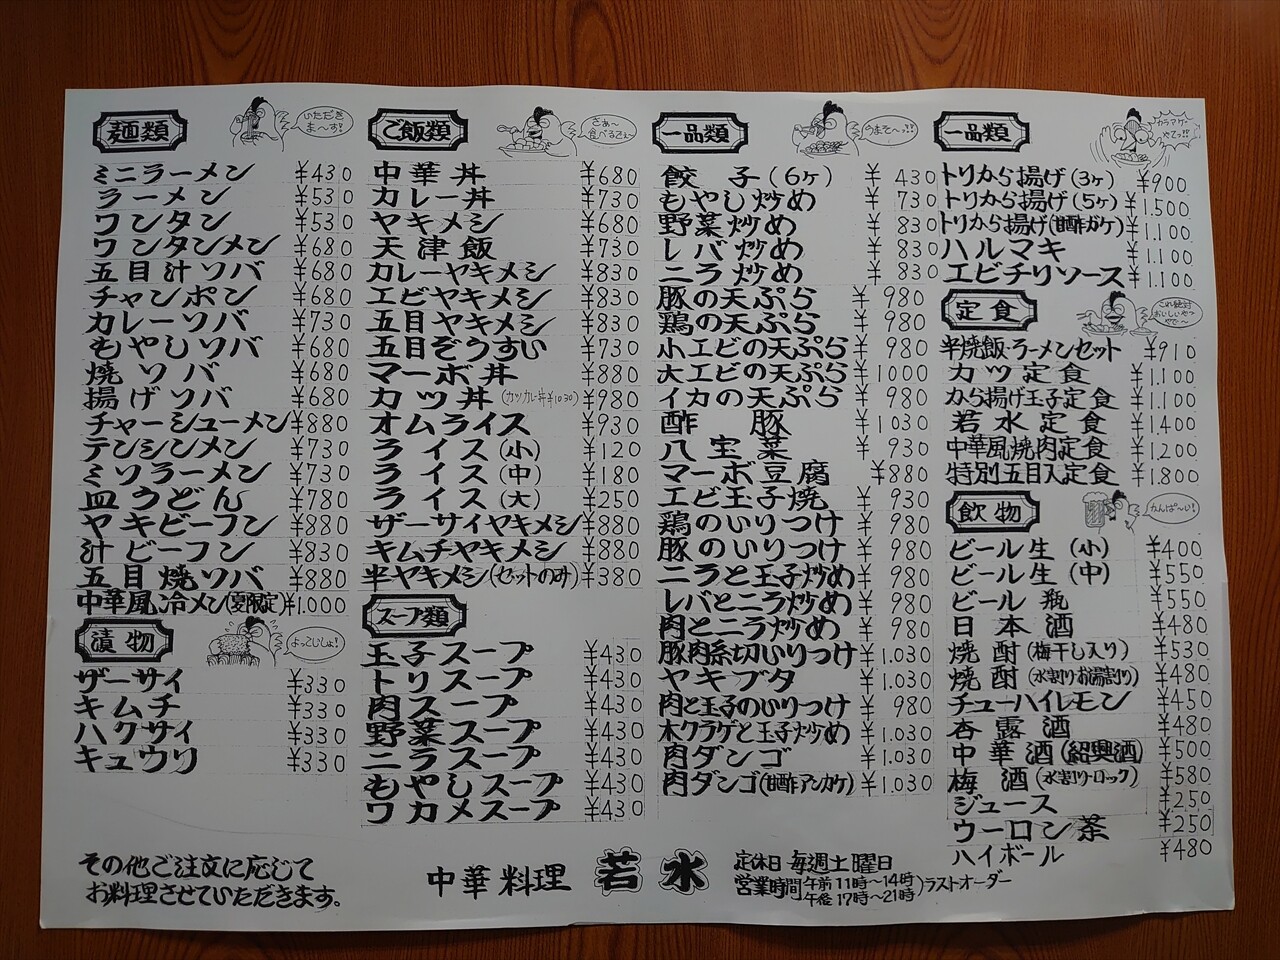 麺類
いただきま〜す!
ミニラーメン ¥430
ラーメン ¥530
ワンタン ¥530
ワンタンメン ¥680
五目汁ソバ ¥680
チャンポン ¥680
カレーソバ ¥730
もやしソバ ¥680
焼ソバ ¥680
揚げソバ ¥680
チャーシューメン ¥880
テンシンメン ¥730
ミソラーメン ¥730
皿うどん ¥780
ヤキビーフン ¥880
汁ビーフン ¥830
五目焼ソバ ¥880
中華風冷メン(夏限定) ¥1.000
漬物
よっこいしょ!
ザーサイ ¥330
キムチ ¥330
ハクサイ ¥330
キュウリ ¥330
ご飯類
さぁ〜食べるさぇ〜
中華丼 ¥680
カレー丼 ¥730
ヤキメシ ¥680
天津飯 ¥730
カレーヤキメシ ¥830
エビヤキメシ ¥830
五目ヤキメシ ¥830
五目ぞうすい ¥730
マーボ丼 ¥880
カツ丼(カツカレー丼¥1030) ¥980
オムライス ¥930
ライス(小) ¥120
ライス(中) ¥180
ライス(大) ¥250
ザーサイヤキメシ ¥880
キムチヤキメシ ¥880
半ヤキメシ(セットのみ) ¥380
スープ類
玉子スープ ¥430
トリスープ ¥430
肉スープ ¥430
野菜スープ ¥430
ニラスープ ¥430
もやしスープ ¥430
ワカメスープ ¥430
一品類
うまそ〜!!
餃子(6ヶ) ¥430
もやし炒め ¥730
野菜炒め ¥830
レバ炒め ¥830
ニラ炒め ¥830
豚の天ぷら ¥980
鶏の天ぷら ¥980
小エビの天ぷら ¥980
大エビの天ぷら ¥1000
イカの天ぷら ¥980
酢豚 ¥1030
八宝菜 ¥930
マーボ豆腐 ¥880
エビ玉子焼 ¥930
鶏のいりつけ ¥980
豚のいりつけ ¥980
ニラと玉子炒め ¥980
レバとニラ炒め ¥980
肉とニラ炒め ¥980
豚肉糸切いりつけ ¥1.030
ヤキブタ ¥1.030
肉と玉子のいりつけ ¥980
木クラゲと玉子炒め ¥1.030
肉ダンゴ ¥1.030
肉ダンゴ(甘酢アンカケ) ¥1.030
一品類
カラアゲやでっ!!
トリから揚げ(3ヶ) ¥900
トリから揚げ(5ヶ) ¥1.500
トリから揚げ(甘酢ガケ) ¥1.100
ハルマキ ¥1.100
エビチリソース ¥1.100
定食
これ絶対おいしいやつやで〜
半焼飯・ラーメンセット ¥910
カツ定食 ¥1.100
から揚げ玉子定食 ¥1.100
若水定食 ¥1.400
中華風焼肉定食 ¥1.200
特別五目入定食 ¥1.800
飲物
かんぱ〜い!
ビール生(小) ¥400
ビール生(中) ¥550
ビール瓶 ¥550
日本酒 ¥480
焼酎(梅干し入り) ¥530
焼酎(水割り・お湯割り) ¥480
チューハイレモン ¥450
杏露酒 ¥480
中華酒(紹興酒) ¥500
梅酒(水割り・ロック) ¥580
ジュース ¥250
ウーロン茶 ¥250
ハイボール ¥480
その他ご注文に応じて
お料理させていただきます。
中華料理 若水
定休日 毎週土曜日
営業時間 午前11時〜14時 午後17時〜21時 )ラストオーダー